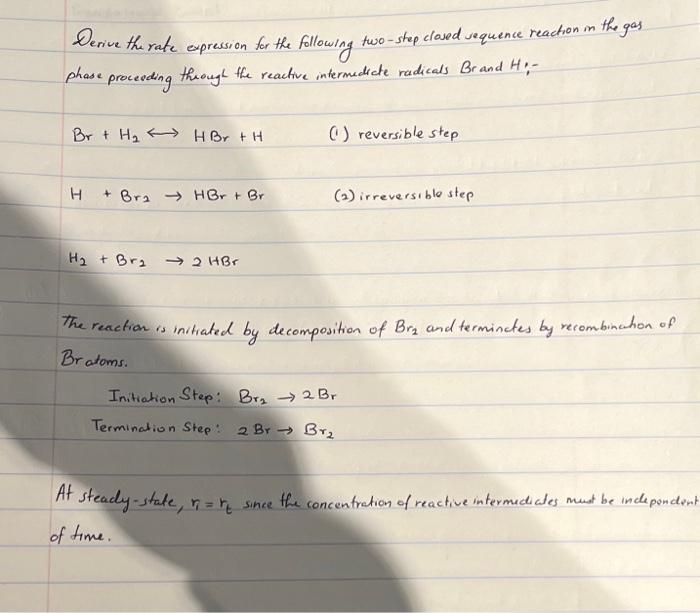 Derive the rate expression for the following two-step closed sequence reaction in the gas
phase proceeding through the reactive intermediate radicals Br and H:-
Br + H₂ ⟷ HBr + H (1) reversible step
H + Br₂ → HBr + Br (2) irreversible step
H₂ + Br₂ → 2 HBr
The reaction is initiated by decomposition of Br₂ and terminates by recombination of
Br atoms.
Initiation Step: Br₂ → 2 Br
Termination Step: 2 Br → Br₂
At steady-state, rᵢ = rₜ since the concentration of reactive intermediates must be independent
of time.